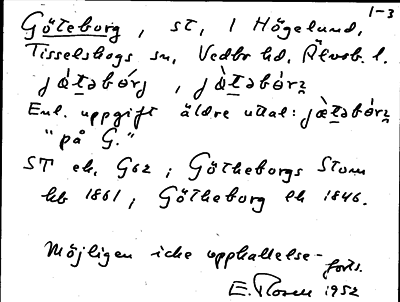 1-3
Göteborg, st, 1 Högelund,
Tisselskogs sn, Vedbo hd, Älvsb. l.
jǿ̀tәbórj, jǿ̀tәbórz
Enl. uppgift äldre uttal: jǿ̀tәbórz
"på G."
ST ek. G62; Götheborgs Stom
kb 1861; Götheborg lk 1846.
Möjligen icke upphallelse-
forts.
E. Rosen 1952